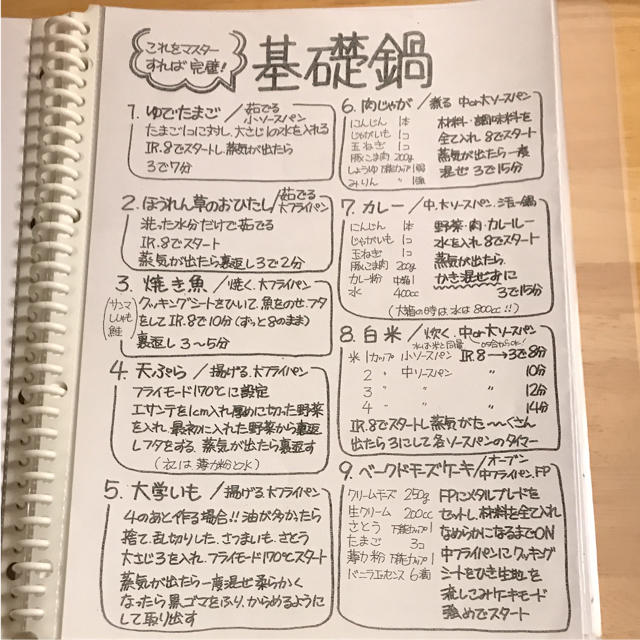 これをマスター
すれば完璧!
基礎鍋
1. ゆでたまご/茹でる 小ソースパン
たまご1コに対し、大さじ1の水を入れる
IR.8でスタートし蒸気が出たら
3で7分
2. ほうれん草のおひたし/茹でる 大フライパン
洗った水分だけで茹でる
IR.8でスタート
蒸気が出たら裏返し3で2分
3. 焼き魚/焼く、大フライパン
サンマ
ししゃも
鮭
クッキングシートをひいて、魚をのせ、フタ
をしてIR.8で10分(ずっと8のまま)
裏返し 3〜5分
4. 天ぷら/揚げる、大フライパン
フライモード170℃に設定
エサンテを1cm入れ厚めに切った野菜
を入れ、最初に入れた野菜から裏返
しフタをする、蒸気が出たら裏返す
(衣は薄力粉と水)
5. 大学いも/揚げる、大フライパン
4のあと作る場合!!油が多かったら
捨て、乱切りした、さつまいも、さとう
大さじ3を入れ、フライモード170℃スタート
蒸気が出たら一度混ぜ柔らかく
なったら黒ゴマをふり、からめるように
して取り出す
6. 肉じゃが/煮る 中or大ソースパン
にんじん 1本
じゃがいも 1コ
玉ねぎ 1コ
豚こま肉 200g
しょうゆ 万能カップ1弱
みりん 〃 1強
材料・調味料を
全て入れ 8でスタート
蒸気が出たら一度
混ぜ 3で15分
7. カレー/中、大ソースパン、
にんじん 1本
じゃがいも 1コ
玉ねぎ 1コ
豚こま肉 200g
カレー粉 中箱1
水 400cc
野菜・肉・カレールー
水を入れ 8でスタート
蒸気が出たら、
かき混ぜずに
3で15分
(大箱の時は水は800cc!!)
8. 白米/炊く、中or大ソースパン
水はお米と同量
米 1カップ 小ソースパン IR.8→3で8分
2 〃 中ソースパン 〃 10分
3 〃 〃 〃 12分
4 〃 〃 〃 14分
IR.8でスタートし蒸気がた〜くさん
出たら3にして各ソースパンのタイマー
9. ベークドモズケーキ/オーブン 中フライパン、FP
クリームモズ 250g
生クリーム 200cc
さとう 万能カップ1
たまご 3コ
薄力粉 万能カップ1
バニラエッセンス 6滴
FPにメタルブレードを
セットし、材料を全て入れ
なめらかになるまでON
中フライパンにクッキング
シートをひき生地を
流しこみケーキモード
強めでスタート